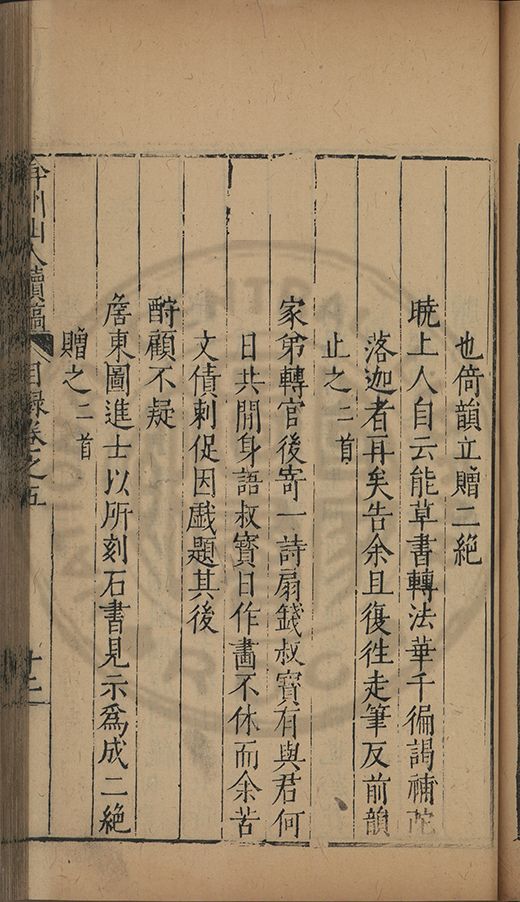 也倚韻立贈二絶
曉上人自云能草書轉法華千徧謁補陀
落迦者再矣告余且復徃走筆反前韻
止之二首
家弟轉官後寄一詩扇錢叔寳有與君何
日共開身語叔寳日作畵不休而余苦
文債刺促因戲題其後
酧顧不疑
詹東圖進士以所刻石書見示爲成二絶
贈之二首
弇州山人續稿 目録卷之五 十二